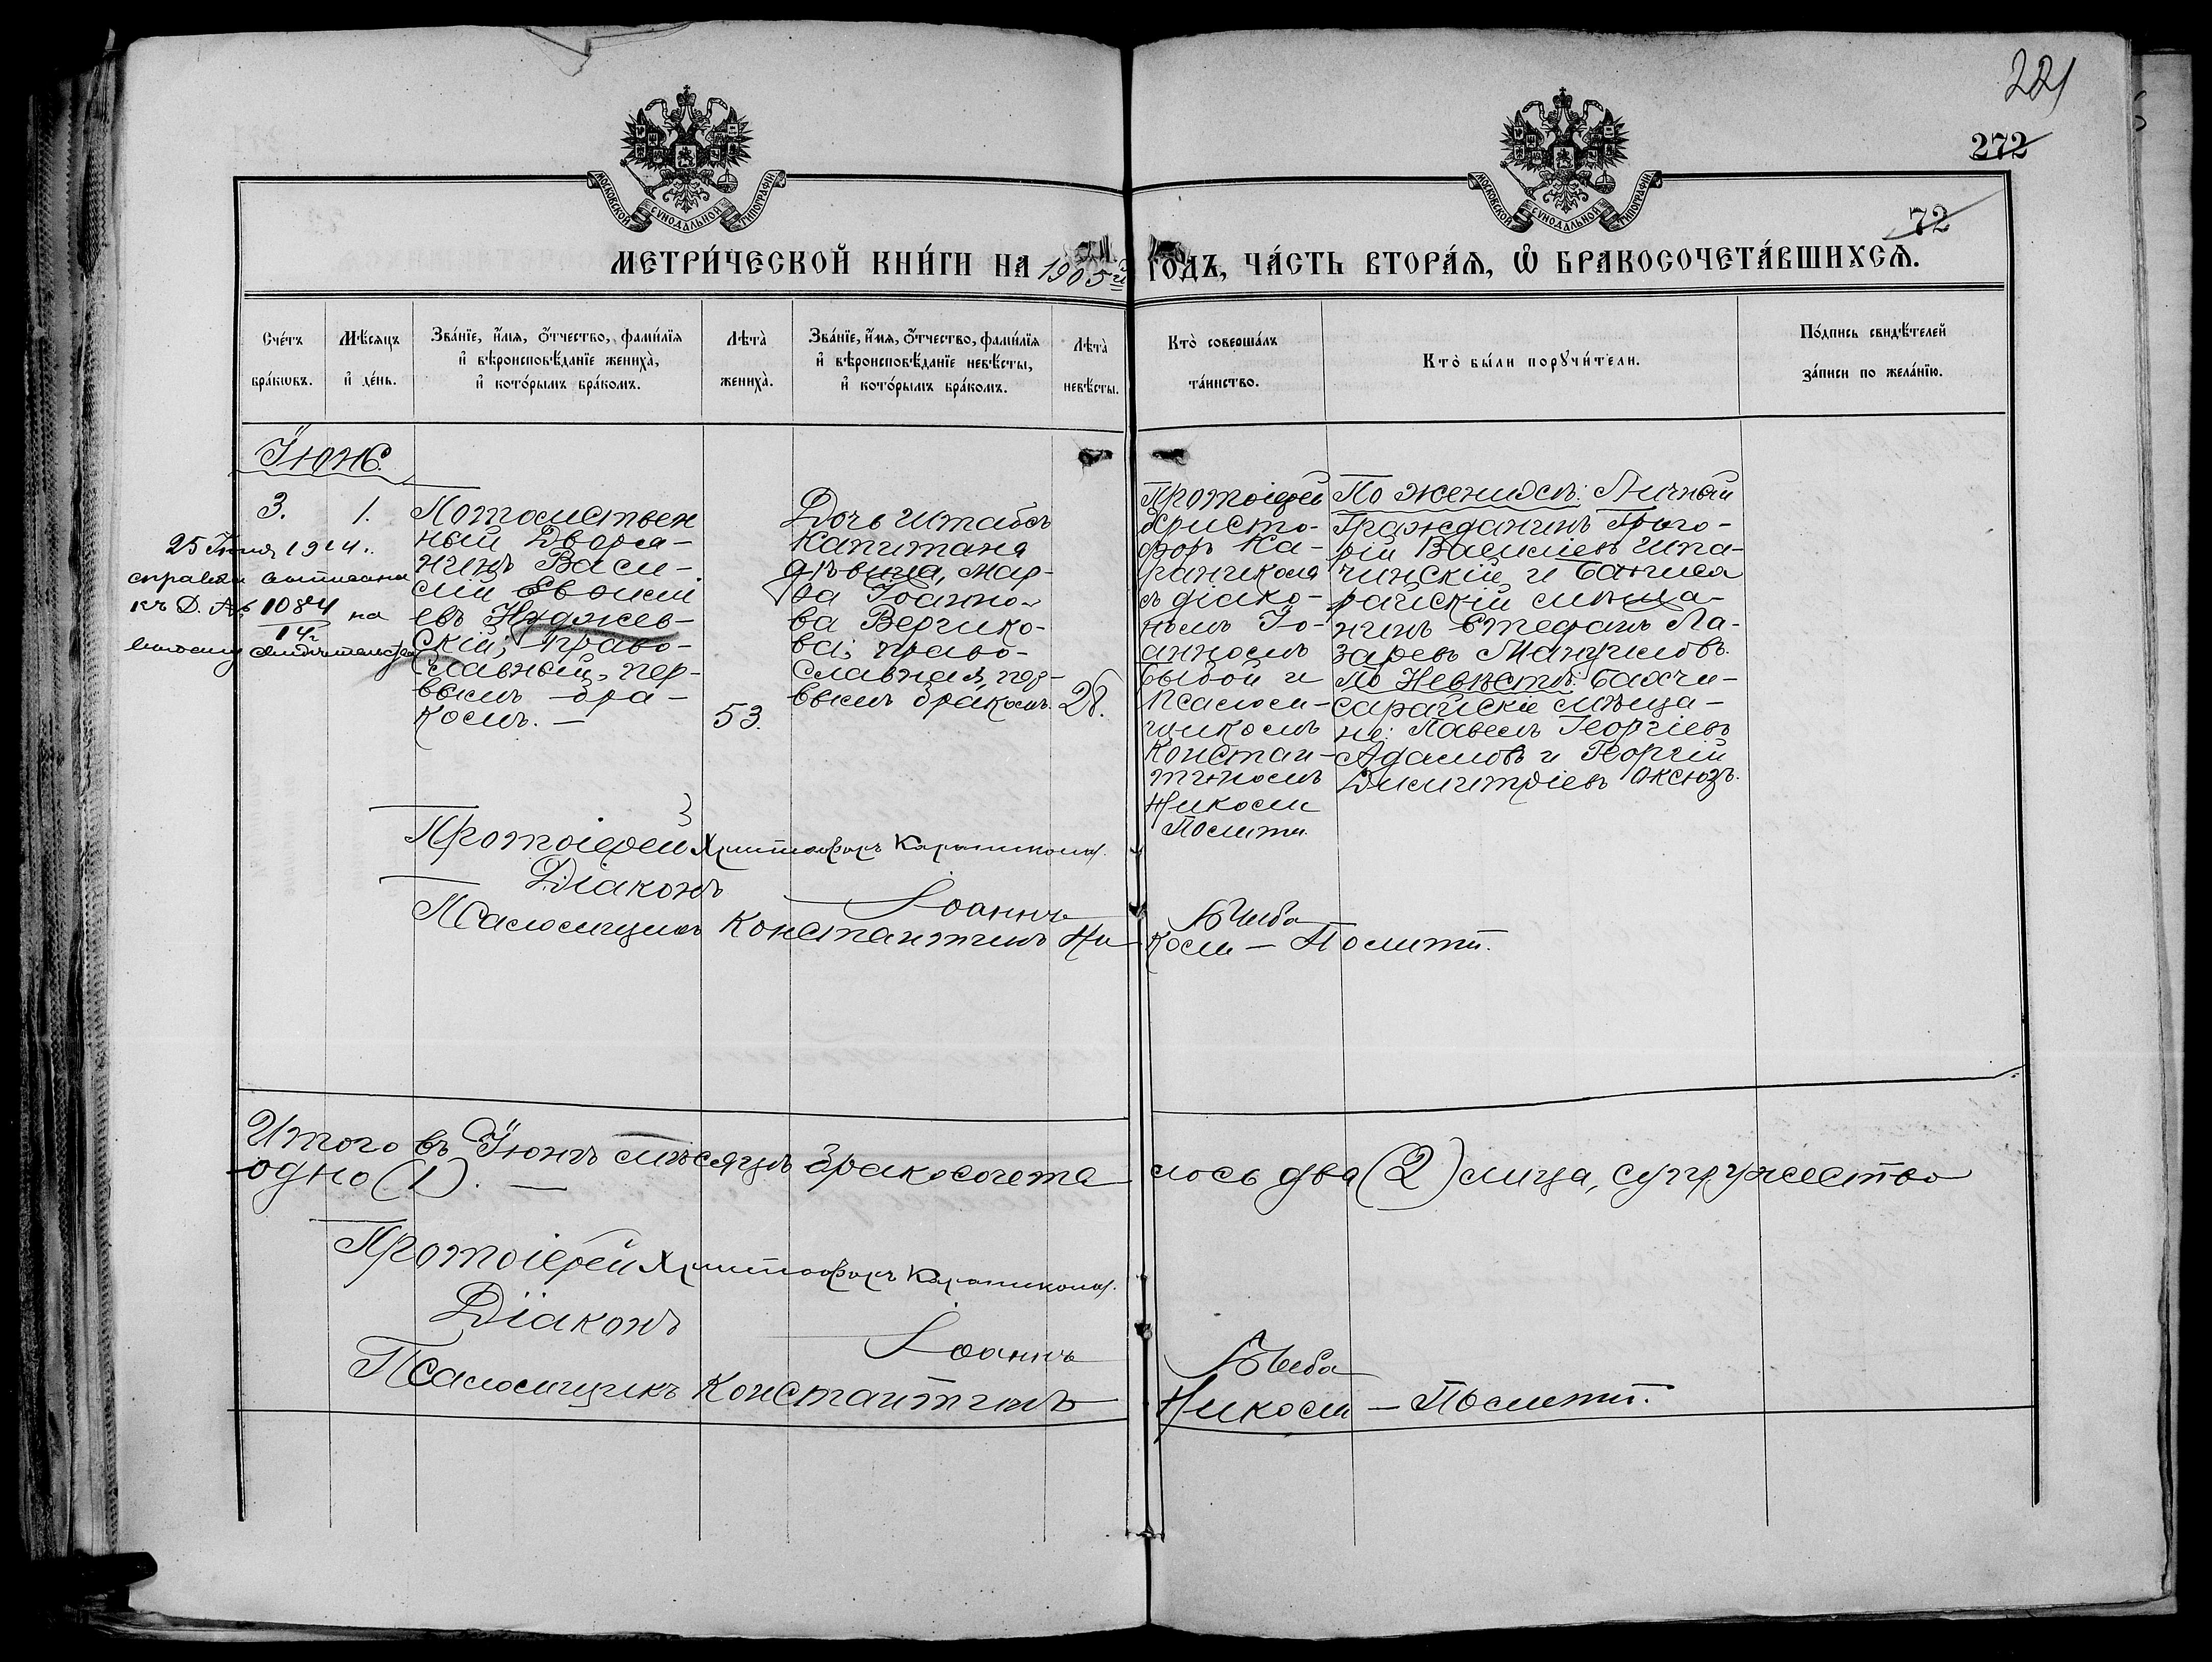 221
272
72
МОСКОВСКОЙ СѴНОДАЛЬНОЙ ТИПОГРАФІИ
МОСКОВСКОЙ СѴНОДАЛЬНОЙ ТИПОГРАФІИ
МЕТРИ́ЧЕСКОЙ КНИ́ГИ НА 1905й ГОДЪ, ЧА́СТЬ ВТОРА́Ѧ, Ѡ҆ БРАКОСОЧЕТА́ВШИХСѦ.
Сче́тъ бра́кѡвъ.
Мѣ́сяцъ и҆ де́нь.
Зва́нїе, и҆́мя, ѻ҆́тчество, фами́лїя и҆ вѣроисповѣ́данїе жениха̀, и҆ кото́рымъ бра́комъ.
Лѣта̀ жениха̀.
Зва́нїе, и҆́мя, ѻ҆́тчество, фами́лїя и҆ вѣроисповѣ́данїе невѣ́сты, и҆ кото́рымъ бра́комъ.
Лѣта̀ невѣ́сты.
Кто̀ соверша́лъ та́инство.
Кто̀ бы́ли порꙋчи́тели.
По́дпись свидѣ́телей за́писи по жела́нїю.
Іюнь.
3.
1.
25 Іюня 1914 г.
справка выписана
къ Д. № 1084/14 г. на
выдачу свидѣтельства
Потомствен
ный Дворя-
нинъ Васи-
лій
евъ Нуджев-
скій; право-
славный, пер-
вымъ бра-
комъ. —
53.
Дочь Штабсъ
Капитана
дѣвица, Мар-
ѳа Іоанно-
ва Вергико-
ва; право-
славная, пер-
вымъ бракомъ.
28.
Протоіерей
Христо-
форъ Ка-
раникола
съ діако-
номъ Іо-
анномъ
Быбой и
Псалом-
щикомъ
Констан-
тиномъ
Николи
Полити.
По женихѣ: Личный
Гражданинъ Григо-
рій Васильевъ Шпа-
чинскій и Бахчиса
райскій мѣща-
нинъ Стефанъ Ла-
заревъ Мангуловъ.
По Невѣстѣ: Бахчи-
сарайскіе мѣща-
не: Павелъ Георгіевъ
Адамовъ и Георгій
Димитріевъ Оксюзъ.
Протоіерей Христофоръ Караникола.
Діаконъ Іоаннъ Быба
Псаломщикъ Константинъ Николи — Полити.
Итого въ Іюнѣ мѣсяцѣ бракосочета лось два (2) лица, супружество
одно (1). —
Протоіерей Христофоръ Караникола.
Діаконъ Іоаннъ Быба
Псаломщикъ Константинъ Николи — Полити.